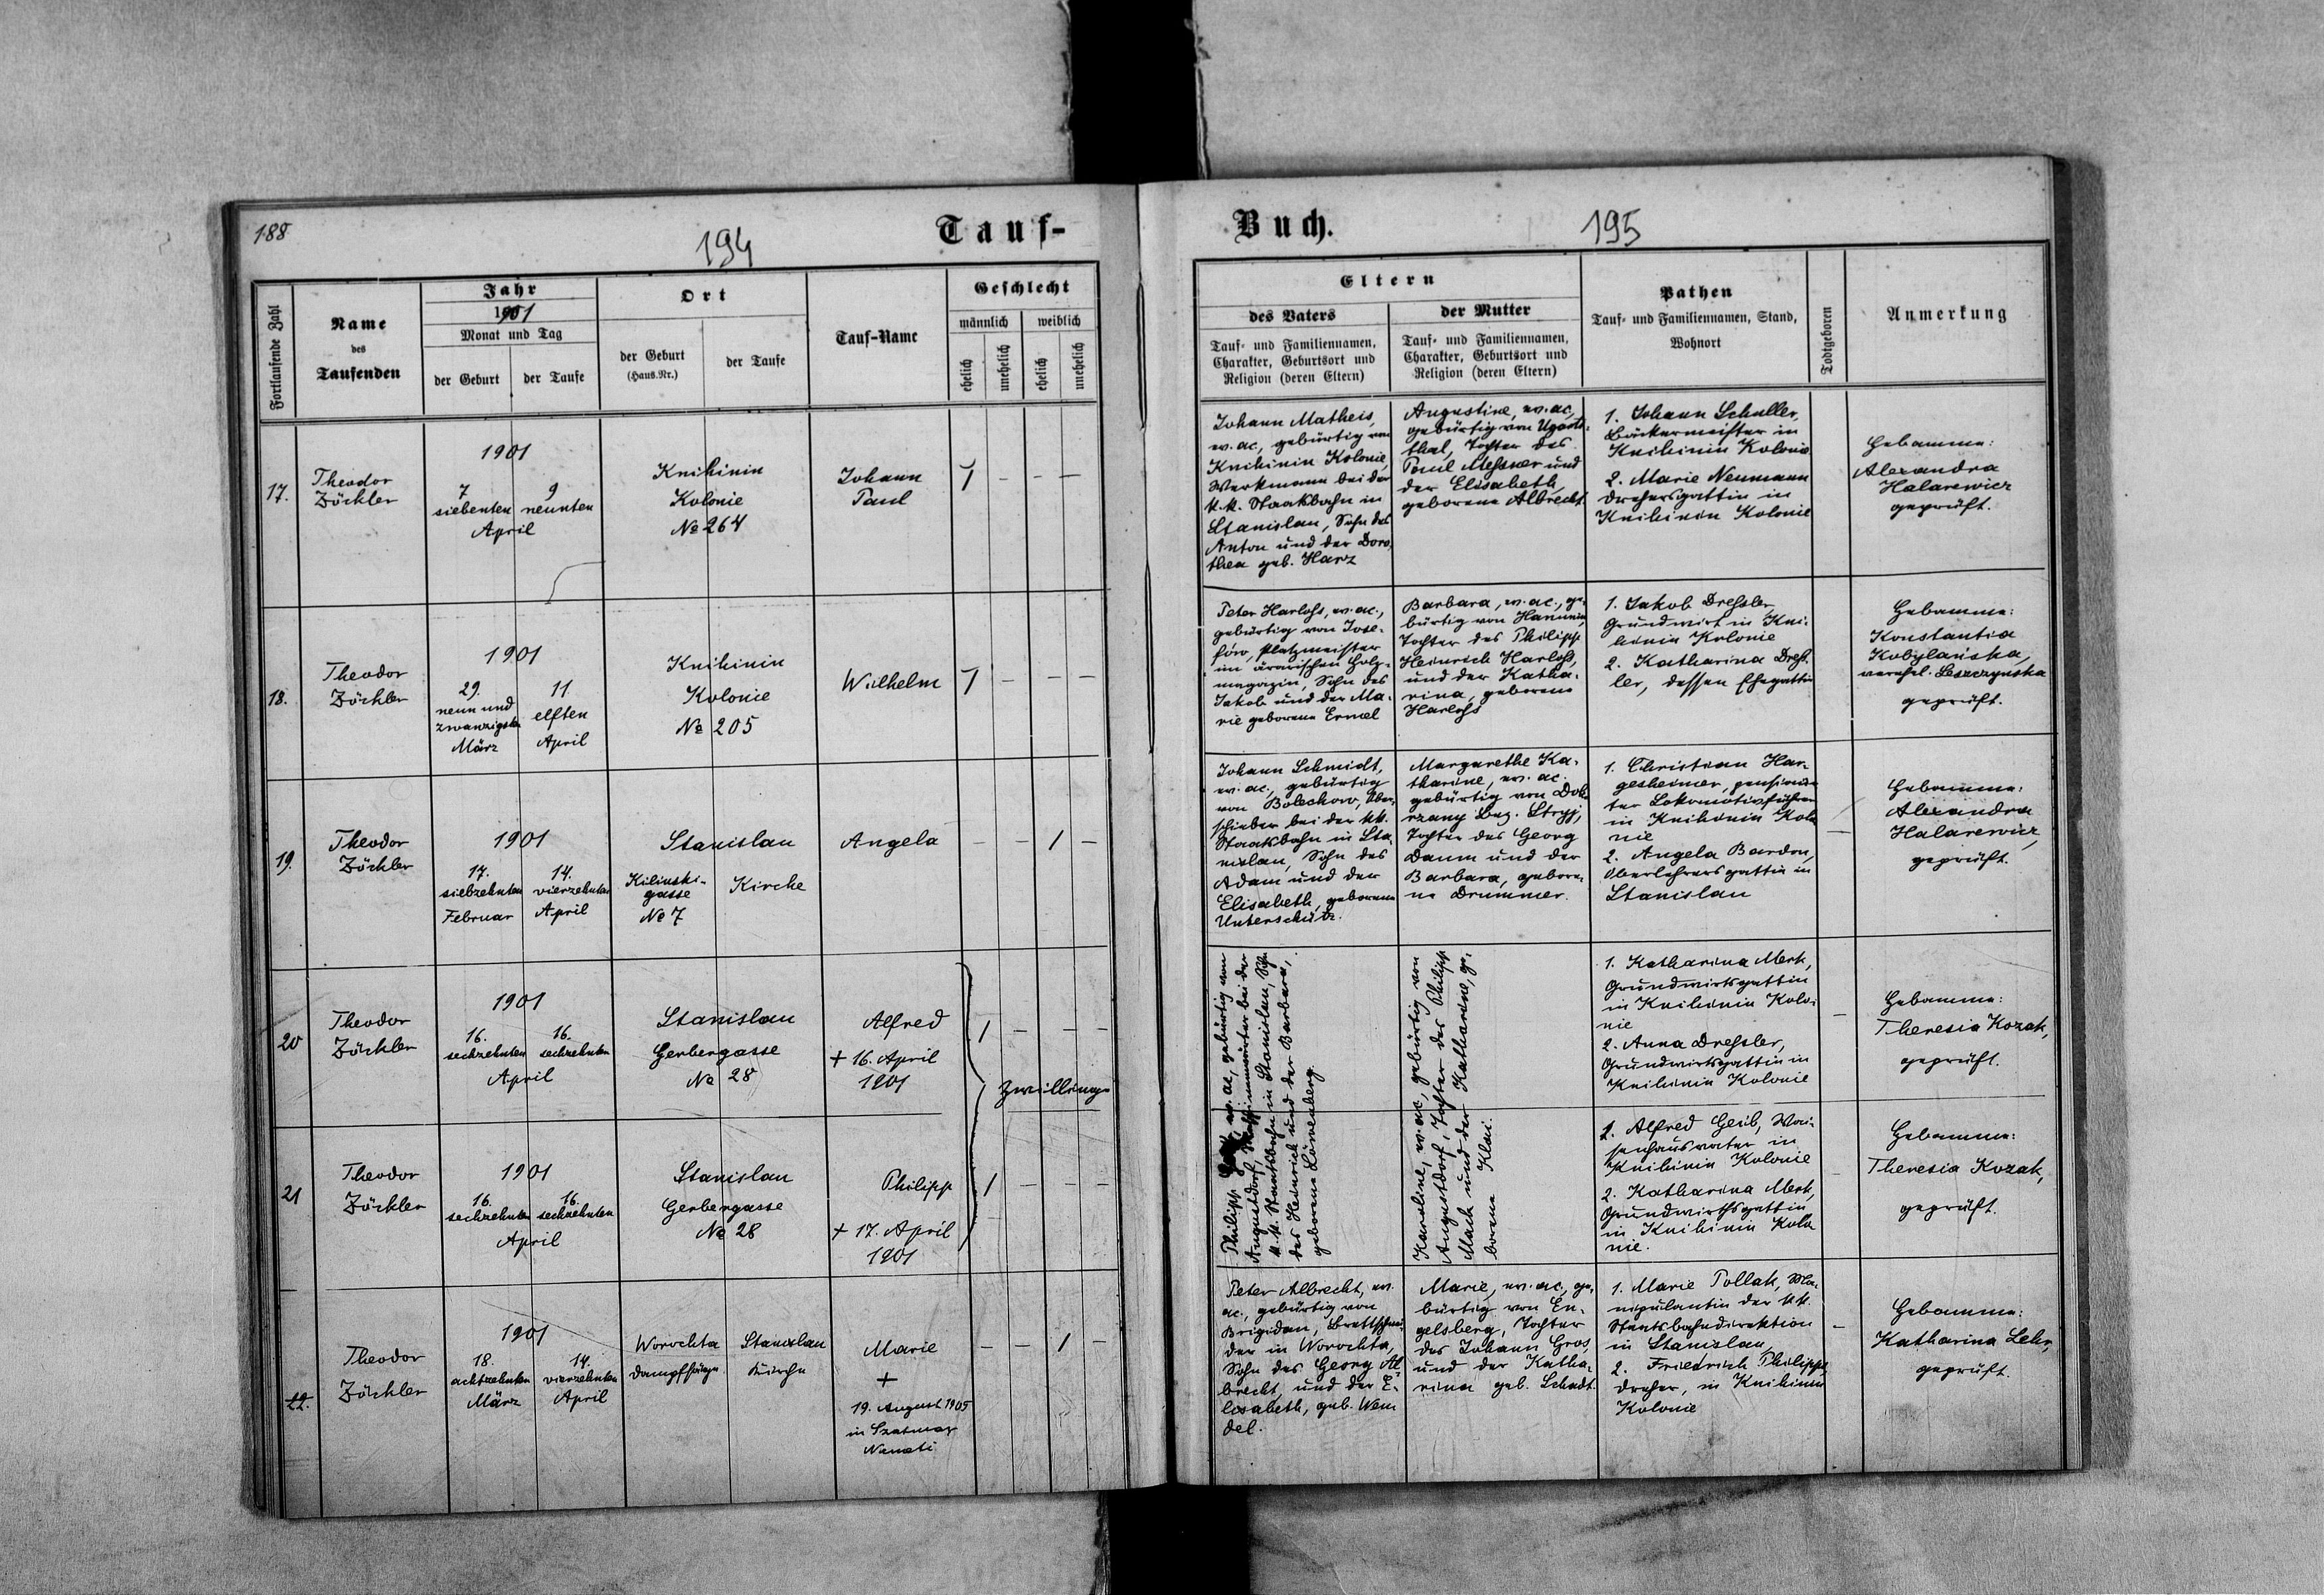 188
194
Tauf-
Fortlaufende Zahl
Name
des
Taufenden
Jahr
1901
Monat und Tag
der Geburt
der Taufe
Ort
der Geburt
(Haus-Nr.)
der Taufe
Tauf-Name
Geschlecht
männlich
weiblich
ehelich
unehelich
ehelich
unehelich
17.
Theodor
Zöckler
1901
7
siebenten
9
neunten
April
Knihinin
Kolonie
№ 264
Johann
Paul
1 - - -
18.
Theodor
Zöckler
1901
29.
neun und
zwanzigsten
März
11
elften
April
Knihinin
Kolonie
№ 205
Wilhelm
1 - - -
19.
Theodor
Zöckler
1901
17.
siebzehnten
Februar
14.
vierzehnten
April
Stanislau
Kilinski-
gasse
№ 7
Kirche
Angela
- - 1 -
20
Theodor
Zöckler
1901
16.
sechzehnten
16.
sechzehnten
April
Stanislau
Gerbergasse
№ 28
Alfred
+ 16. April
1901
1 - - -
Zwillinge
21
Theodor
Zöckler
1901
16.
sechzehnten
16.
sechzehnten
April
Stanislau
Gerbergasse
№ 28
Philipp
+ 17. April
1901
1 - - -
22.
Theodor
Zöckler
1901
18.
achtzehnten
März
14.
vierzehnten
April
Worochta
Dampfsäge
Stanislau
Kirche
Marie
+
19. August 1905
in Szatmar
Nemeti
- - 1 -
Buch.
195
Eltern
des Vaters
Tauf- und Familiennamen,
Charakter, Geburtsort und
Religion (deren Eltern)
der Mutter
Tauf- und Familiennamen,
Charakter, Geburtsort und
Religion (deren Eltern)
Pathen
Tauf- und Familiennamen, Stand,
Wohnort
Todtgeboren
Anmerkung
Johann Matheis,
ev. ac., gebürtig von
Knihinin Kolonie,
Werkmann bei der
k.k. Staatsbahn in
Stanislau, Sohn des
Anton und der Doro,
thea geb. Harz
Augustine, ev. ac.,
gebürtig von Ugarts-
thal, Tochter des
Paul Messner und
der Elisabeth,
geborene Albrecht
1. Johann Schuller,
Bäckermeister in
Knihinin Kolonie
2. Marie Neumann
Drehersgattin in
Knihinin Kolonie
Hebamme:
Alexandra
Halarewicz
geprüft.
Peter Harlohs, ev. ac.,
gebürtig von Jose-
fów, Platzmeister
im ärarischen Holz-
magazin, Sohn des
Jakob und der Ma-
rie geborene Ermel
Barbara, ev. ac., ge-
bürtig von Hanunin
Tochter des Philipp
Heinrich Harlohs,
und der Katha-
rina, geborene
Harlohs
1. Jakob Dressler,
Grundwirt in Kni-
hinin Kolonie
2. Katharina Dress-
ler, dessen Ehegattin
Hebamme:
Konstantia
Kobylańska,
verehel. Leszczynska
geprüft.
Johann Schmidt,
ev. ac., gebürtig
von Bolechow, Ver-
schieber bei der kk.
Staatsbahn in Sta-
nislau, Sohn des
Adam und der
Elisabeth, geborene
Unterschütz.
Margarethe Ka-
tharine, ev. ac.
gebürtig von Dob-
rzany Bez. Stryj,
Tochter des Georg
Daum und der
Barbara, gebore-
ne Drummer.
1. Christian Har-
gesheimer, pensionir-
ter Lokomotivführer
in Knihinin Kolo
nie
2. Angela Bardon,
Oberlehrersgattin in
Stanislau
-
Hebamme:
Alexandra
Halarewicz,
geprüft.
Philipp ev. ac., gebürtig von
Augustdorf, bei der
k.k. Staatsbahn in Stanislau, Sohn
des Heinrich und der Barbara,
geborene Löwenberg.
Karoline, ev. ac., gebürtig von
Augustdorf, Tochter des Philipp
Mack und der Katharine, ge-
borene Klai.
1. Katharina Merk,
Grundwirtsgattin
in Knihinin Kolo-
nie
2. Anna Dressler,
Grundwirtsgattin in
Knihinin Kolonie
-
Hebamme:
Theresia Kozak,
geprüft.
1. Alfred Geib, Wai-
senhausvater in
Knihinin Kolonie
2. Katharina Merk,
Grundwirthsgattin
in Knihinin Kolo
nie.
-
Hebamme:
Theresia Kozak,
geprüft.
Peter Albrecht, ev.
ac., gebürtig von
Brigidau, Brettschnei-
der in Worochta,
Sohn des Georg Al-
brecht, und der E-
lisabeth, geb. Wen
del.
Marie, ev. ac., ge-
bürtig von En-
gelsberg, Tochter
des Johann Gros,
und der Katha-
rina geb. Schadt.
1. Marie Pollak, Ma-
nipulantin der kk.
Staatsbahndirektion
in Stanislau,
2. Friedrich Philipps,
Dreher, in Knihinin
Kolonie
-
Hebamme:
Katharina Lehr,
geprüft.